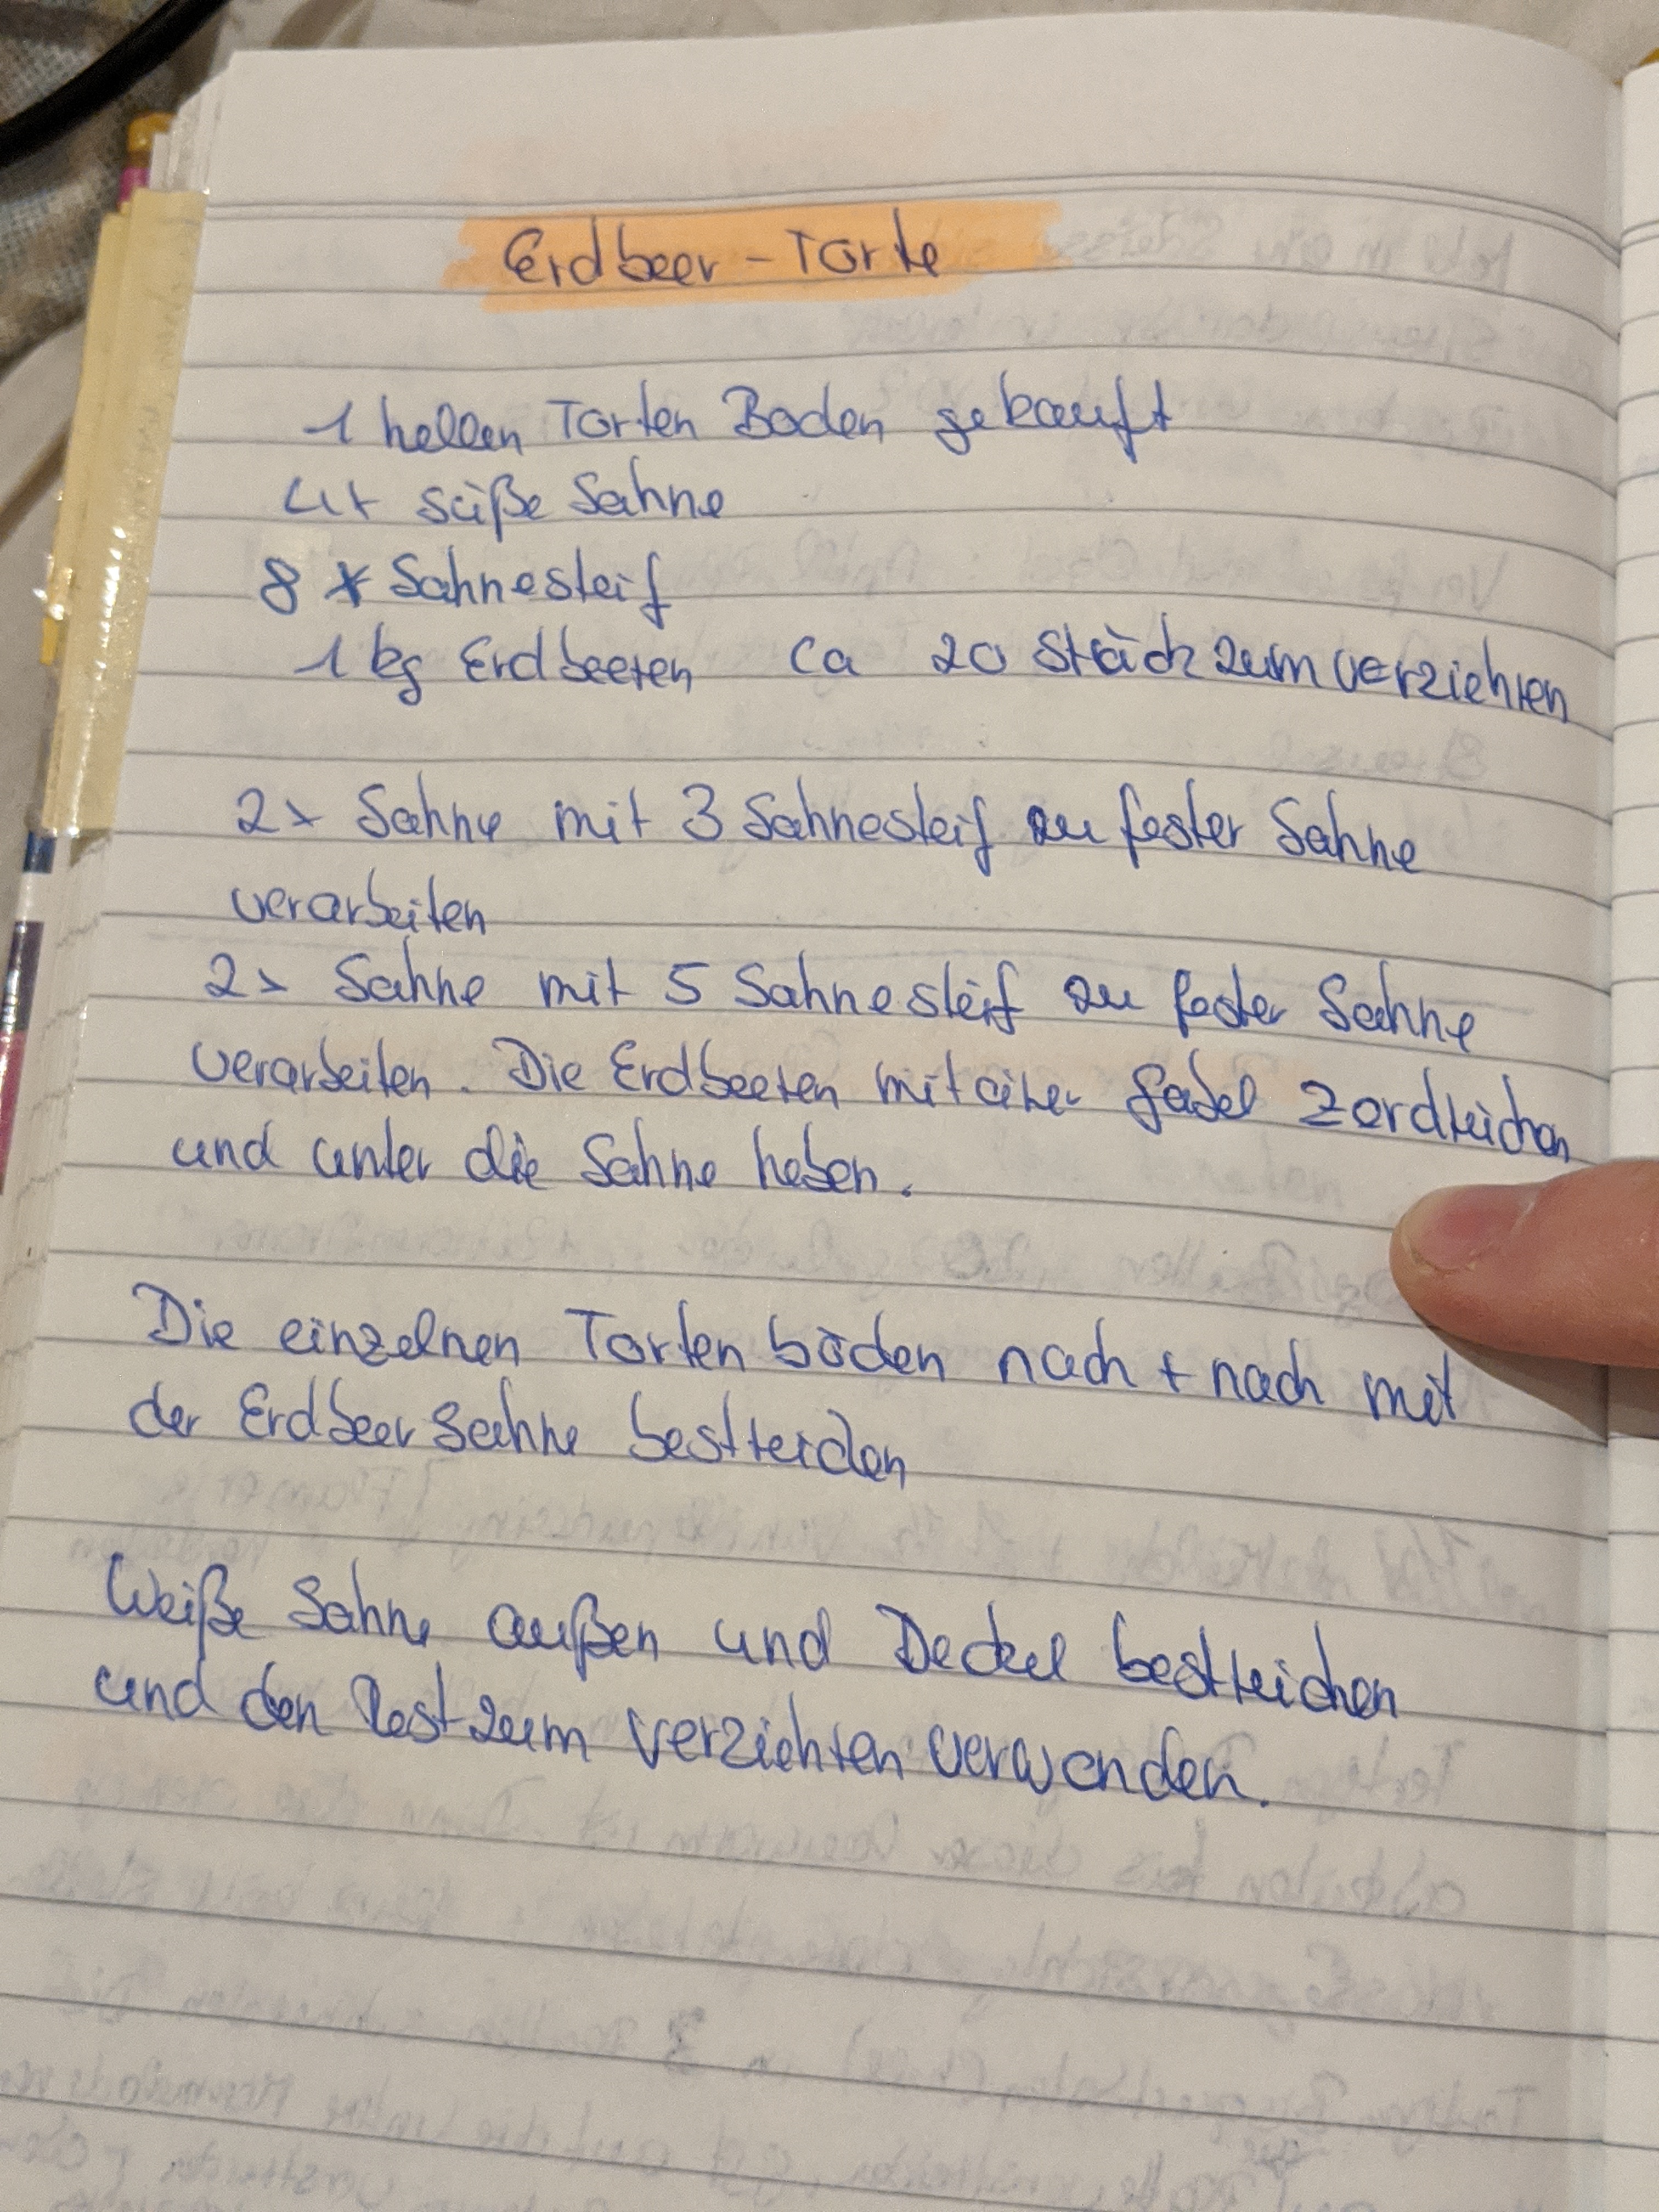 Erdbeer-Torte
1 hellen Torten Boden gekauft
4x süße Sahne
8 x Sahnesteif
1 kg Erdbeeren ca 20 Stück zum verziehren
2x Sahne mit 3 Sahnesteif zu fester Sahne
verarbeiten
2x Sahne mit 5 Sahnesteif zu fester Sahne
verarbeiten. Die Erdbeeren mit einer Gabel zerdrücken
und unter die Sahne heben.
Die einzelnen Torten böden nach + nach mit
der Erdbeer Sahne bestreichen
Weiße Sahne außen und Deckel bestreichen
und den Rest zum verziehren verwenden.